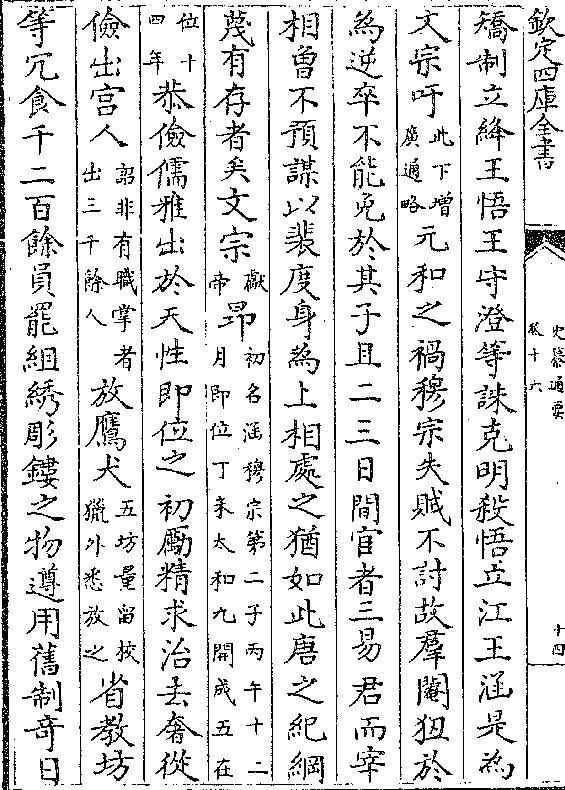 欽定四庫全書
史纂通要
卷十六
十四
矯制立絳王悟王守澄等誅克明殺悟立江王涵是為
文宗吁此下增廣通略元和之禍穆宗失賊不討故羣閹狃於
為逆卒不能免於其子且二三日間宦者三易君而宰
相曾不預謀以裴度身為上相處之猶如此唐之紀綱
蔑有存者矣文宗獻帝昂初名涵穆宗第二子丙午十二月即位丁未太和九開成五在
位十四年恭儉儒雅出於天性即位之初勵精求治去奢從
儉出宫人詔非有職掌者出三千餘人放鷹犬五坊量留校獵外悉放之省教坊
等冗食千二百餘員罷組綉彫鏤之物遵用舊制竒日